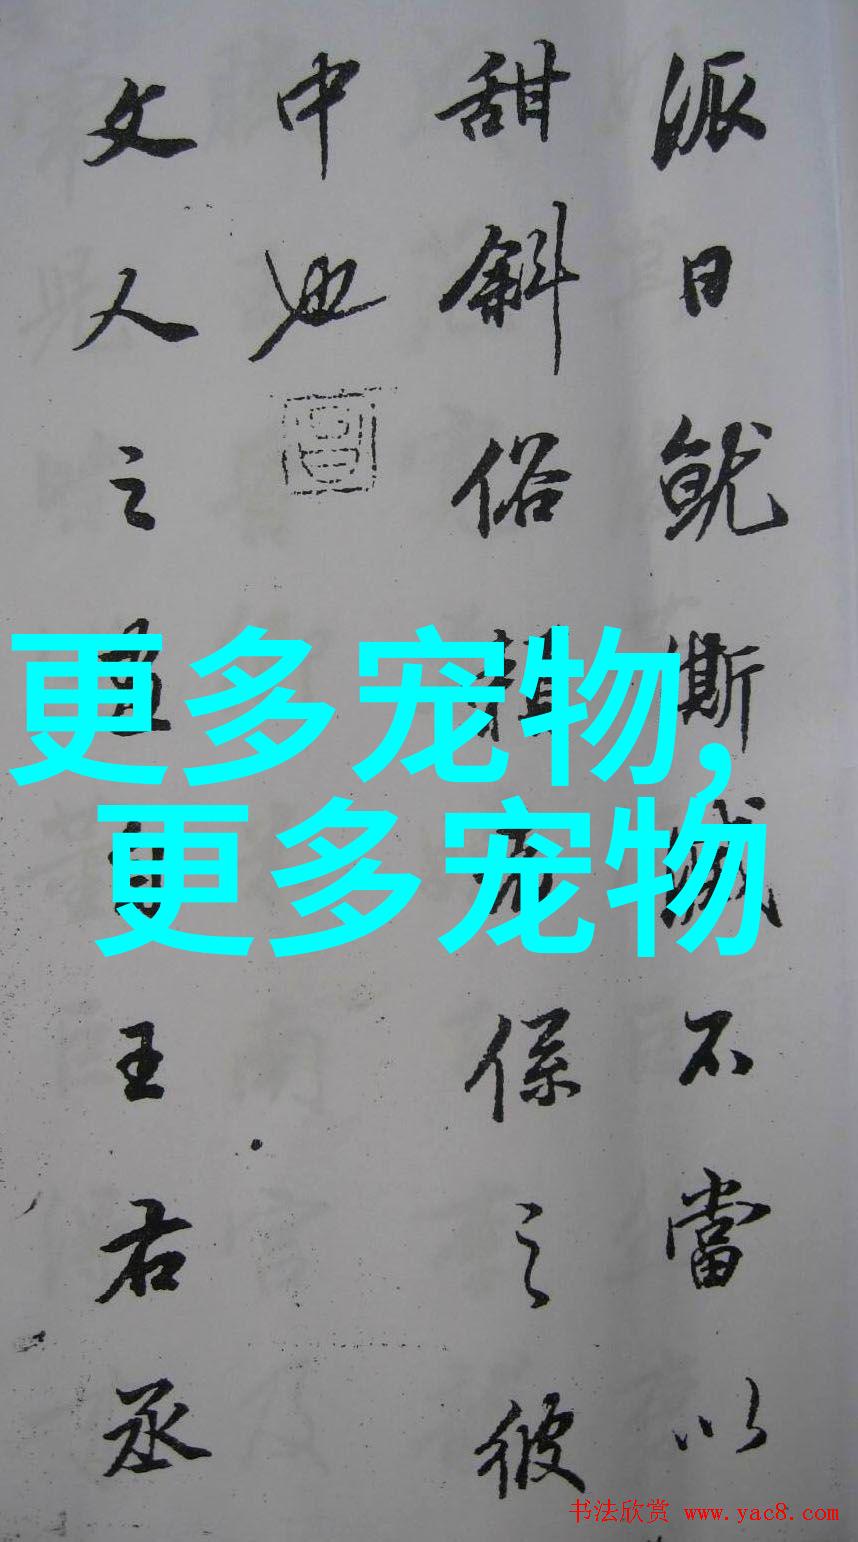 派日不當以
甜斜俗之彼
中也
文人之畫自王右丞
更多宠物,
更多宠物
书法欣赏 www.yac8.com